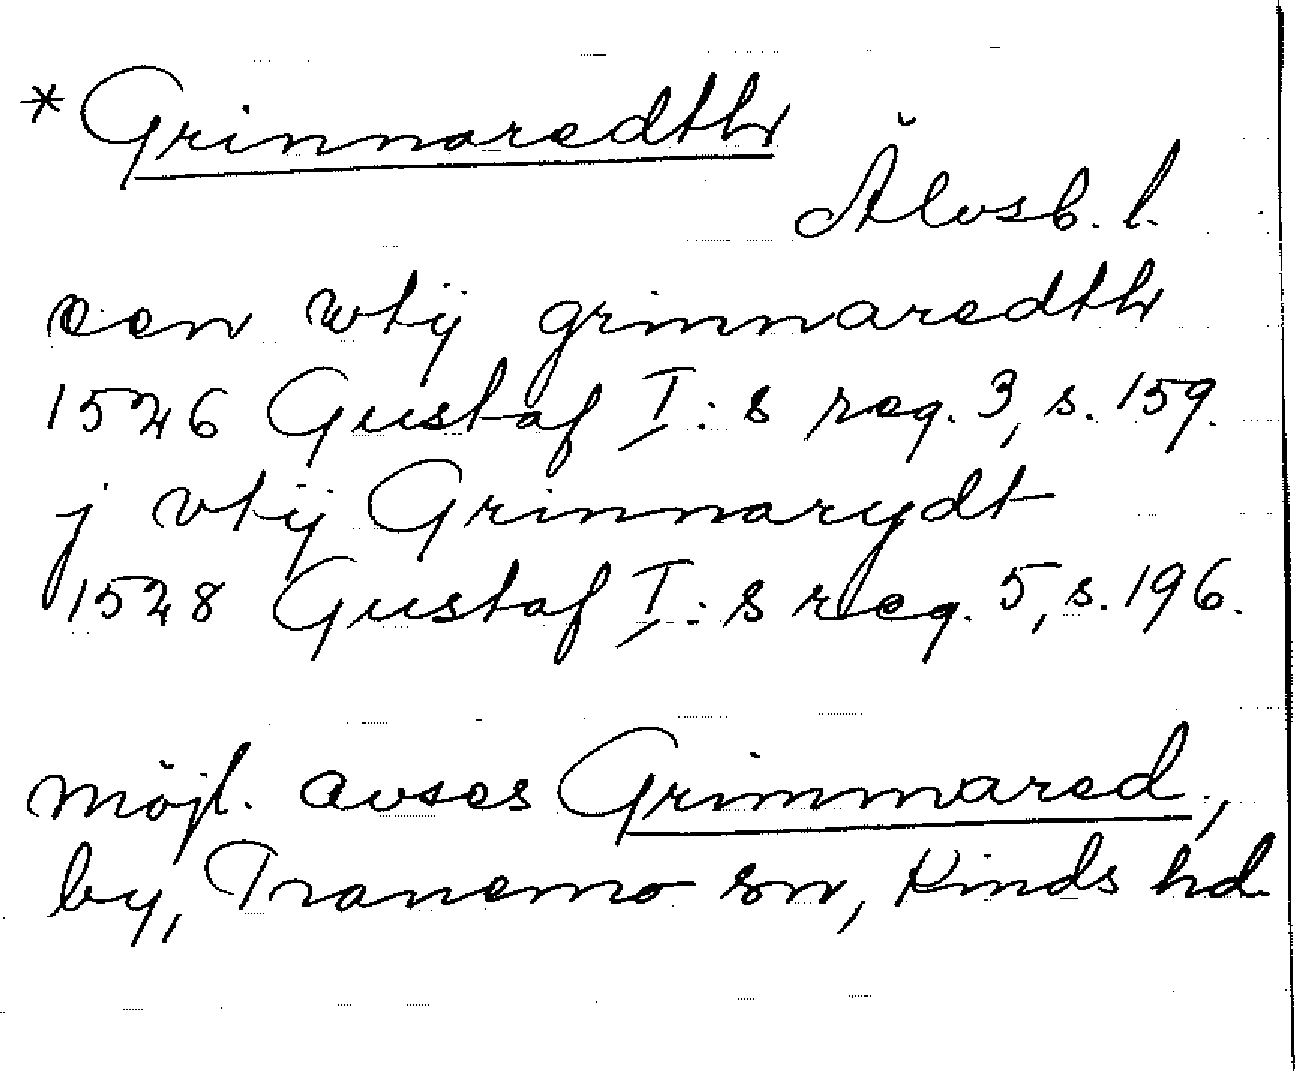 * Grinnaredth
Älvsb. l.
een wtij grinnaredth
1526 Gustaf I:s reg. 3, s. 159.
j vtij Grinnarydt
1528 Gustaf I:s reg. 5, s. 196.
möjl. avses Grimmared,
by, Tranemo sn, Kinds hd